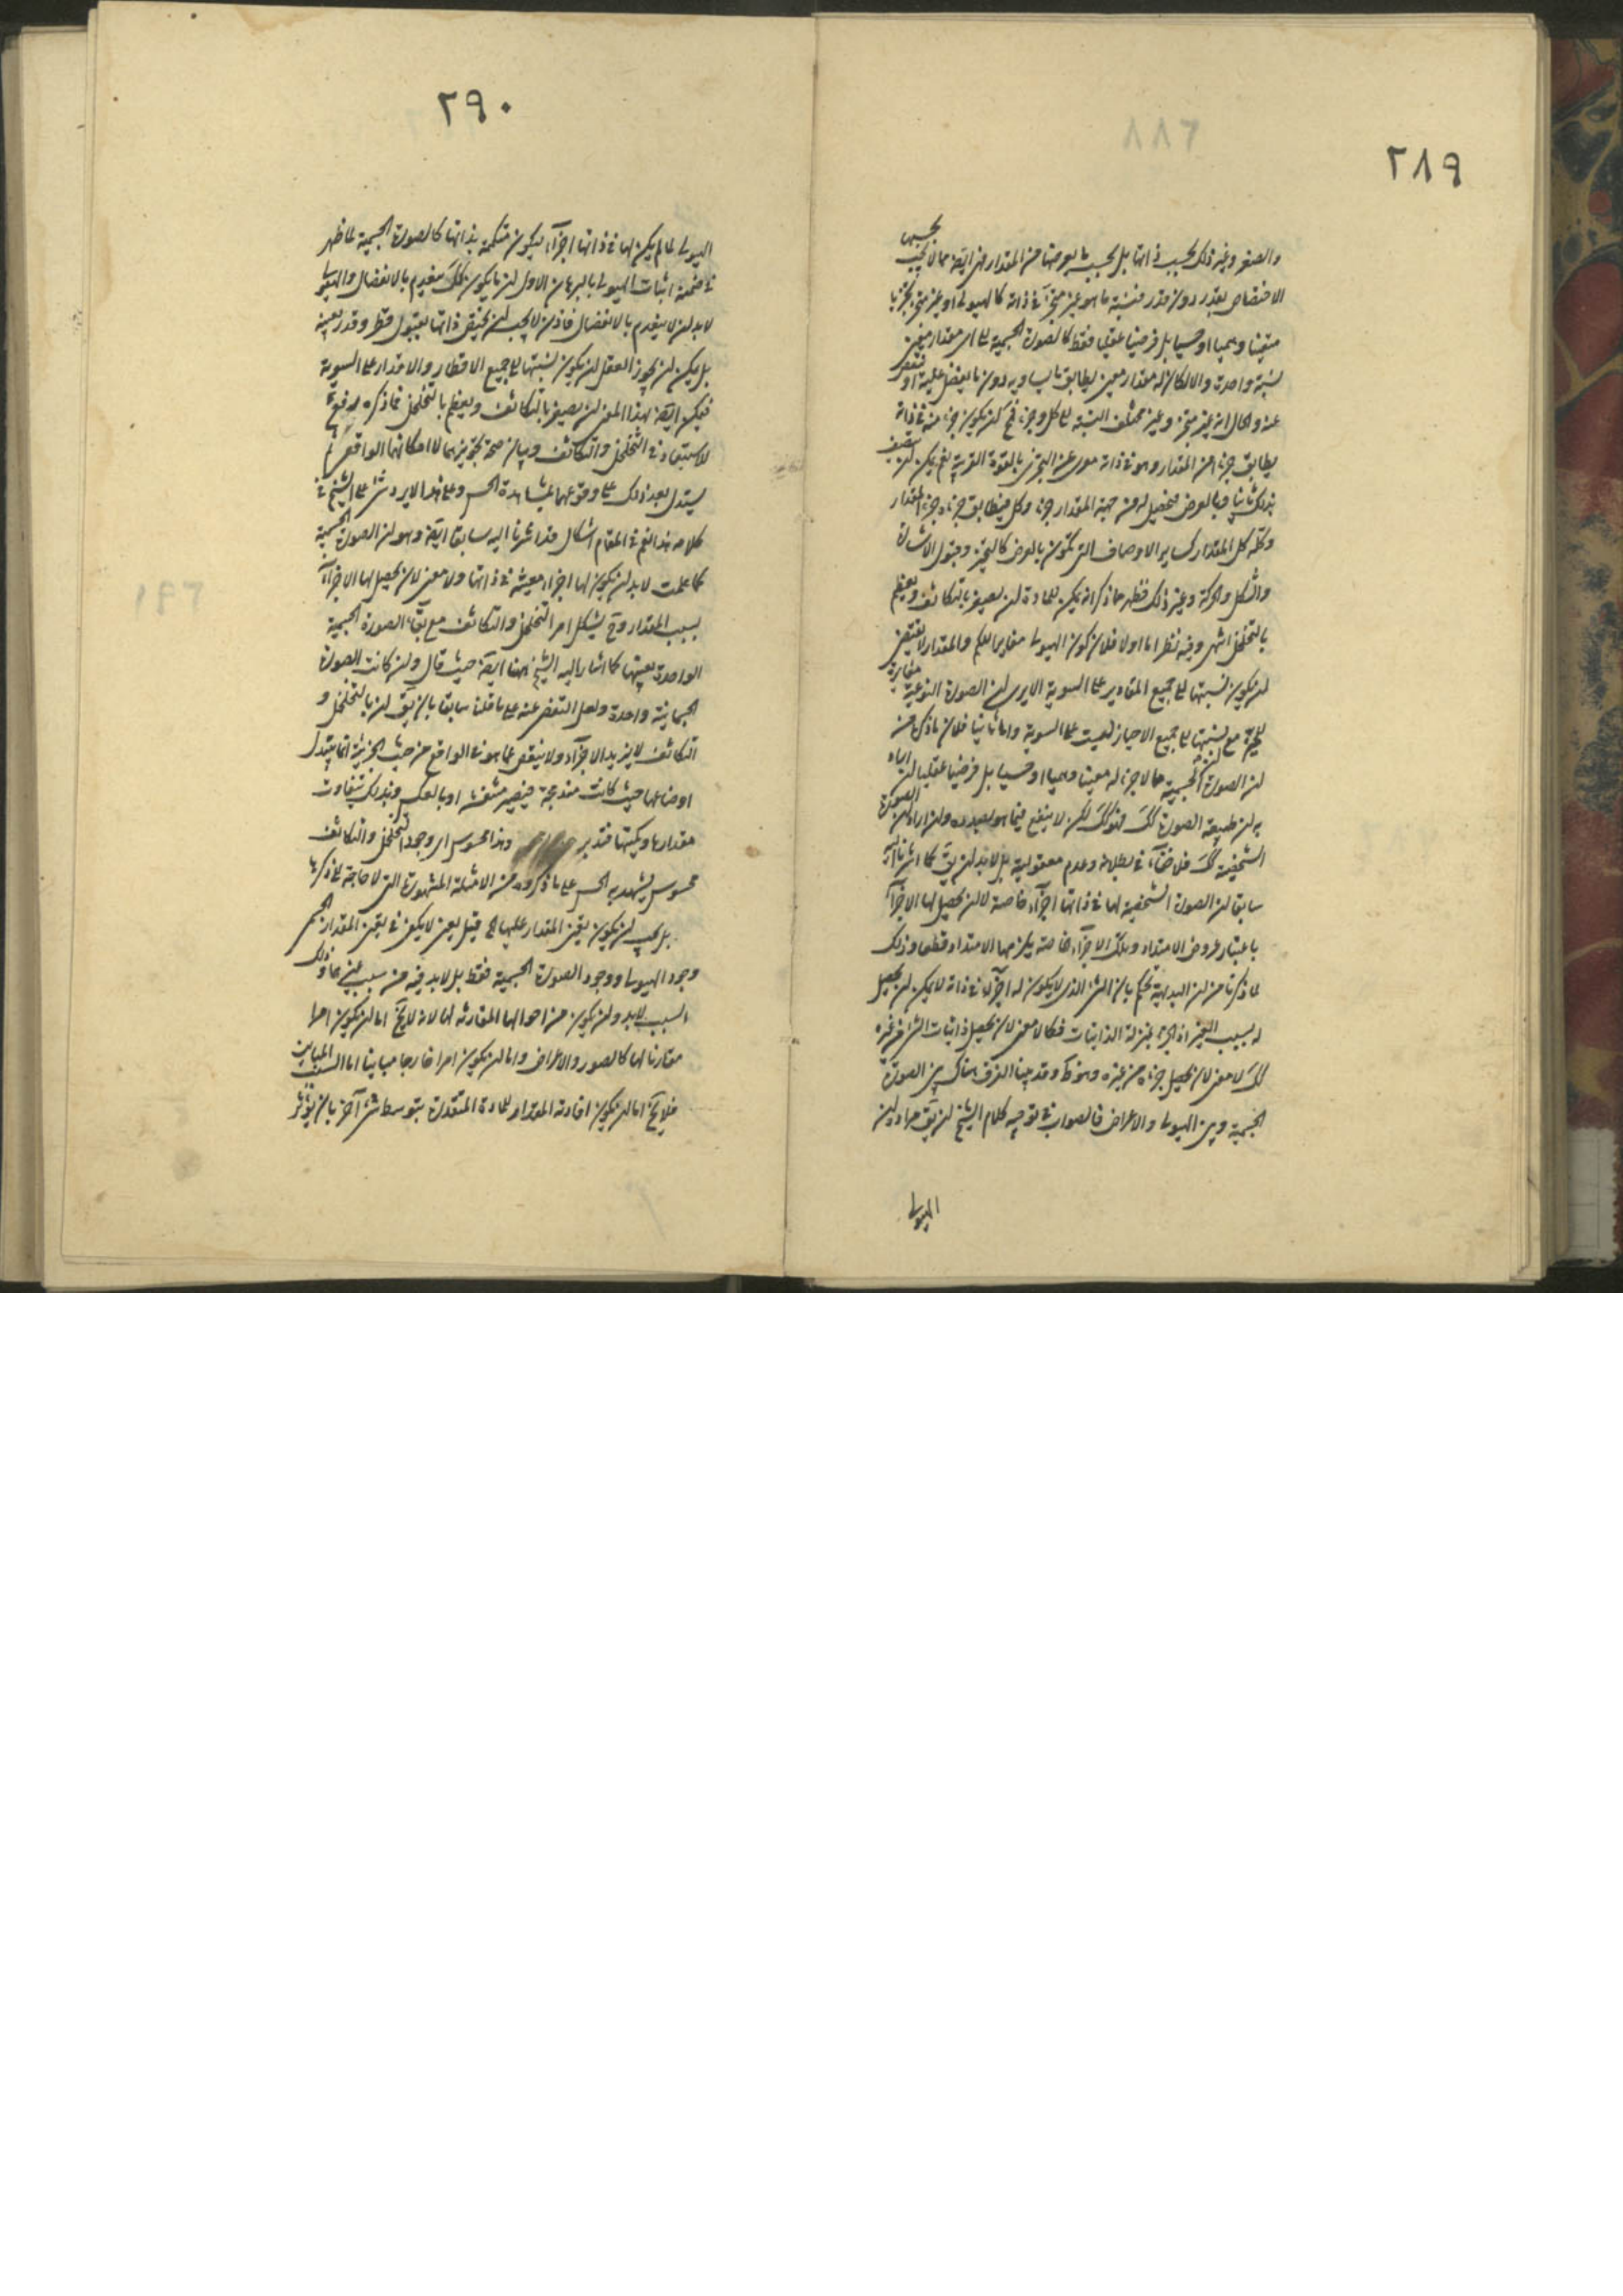 ٢٨٩
والصغر وغير ذلك بحسب ذاتها بل بحسب ما يعرضها من المقدار فهى ايضا مما لا يجب بحسبها
الاختصاص بقدر دون قدر فنسبة ما هو غير متجزء فى ذاته كالهيولى او غير متجز تجزيا
متعينا وهميا او حسيا بل فرضيا عقليا فقط كالصورة الجسمية الى اى مقدار معين
نسبة واحدة والا لكان له مقدار معين يطابق ما يساويه دون ما يفضل عليه او ينقص
عنه والحال انه غير متجز وغير مختلف النسبة الى كل وجزء لكن يكون جزء منه فى ذاته
يطابق جزءا من المقدار وهو فى ذاته معرى عن التجزى بالقوة القريبة نعم يمكن ان يتصف
بذلك ثانيا وبالعرض فيحصل له من جهة المقدار جزء وكل فيطابق جزءه جزء المقدار
وكله كل المقدار كساير الاوصاف التى تكون بالعرض كالتحيز وقبول الاشارة
والشكل والحركة وغير ذلك فظهر مما ذكر انه يمكن للمادة ان يصغر بالتكاثف ويعظم
بالتخلخل انتهى وفيه نظر اما اولا فلان كون الهيولى مغايرا للكم والمقدار لا يقتضى
ان يكون نسبتها الى جميع المقادير على السوية الا يرى ان الصورة النوعية مغايرة
للحيز مع ان نسبتها الى جميع الاحياز ليست على السوية واما ثانيا فلان ما ذكره من
ان الصورة الجسمية مما لا جزء له معينا وهميا او حسيا بل فرضيا عقليا ان اراد
به ان طبيعة الصورة كك فهو كك لكن لا ينفع فيما هو بصدده وان اراد ان الصورة
الشخصية كك فلا خفاء فى بطلانه وعدم معقوليته بل لا بد ان يق كما اشرنا اليه
سابقا ان الصورة الشخصية لها فى ذاتها اجزاء خاصة لا ان يحصل لها الاجزاء
باعتبار عروض الامتداد وتلك الاجزاء خاصة يلزمها الامتداد قطعا وذلك
لما ذكرنا من ان البديهة تحكم بان الشئ الذى لا يكون له اجزاء فى ذاته لا يمكن ان يحصل
له بسبب الغير اذ الجزء بمنزلة الذاتيات فكما لا معنى لان يحصل ذاتيات الشئ من غيره
كك لا معنى لان يحصل جزءه من غيره وهو ظ وقد بينا الفرق هناك بين الصورة
الجسمية وبين الهيولى والاعراض فالصواب فى توجيه كلام الشيخ ان يق مراده ان
الهيولى
٢٩٠
الهيولى لما لم يكن لها فى ذاتها اجزاء ليكون متكممة بذاتها كالصورة الجسمية لما ظهر
فى ضمن اثبات الهيولى بالبرهان الاول ان ما يكون كك ينعدم بالانفصال والهيولى
لا بد ان لا ينعدم بالانفصال فاذن لا يجب ان يختص ذاتها بقبول قطر وقدر بعينه
بل يمكن ان يجوز العقل ان يكون نسبتها الى جميع الاقطار والاقدار على السوية
فيمكن ايضا بهذا المعنى ان يصغر بالتكاثف ويعظم بالتخلخل فما ذكره لدفع
الاستبعاد فى التخلخل والتكاثف وبيان صحة تجويزهما لا امكانهما الواقعى ثم
يستدل بعد ذلك على وقوعهما بمشاهدة الحس وعلى هذا لا يرد شئ على الشيخ فى
كلامه هذا نعم فى المقام اشكال قد اشرنا اليه سابقا ايضا وهو ان الصورة الجسمية
كما علمت لا بد ان يكون لها اجزاء معينة فى ذاتها ولا معنى لان يحصل لها الاجزاء
بسبب المقدار وح يشكل امر التخلخل والتكاثف مع بقاء الصورة الجسمية
الواحدة بعينها كما اشار اليه الشيخ ههنا ايضا حيث قال وان كانت الصورة
الجسمانية واحدة ولعل التفصى عنه على ما قلنا سابقا بان يق ان بالتخلخل و
التكاثف لا يزيد الاجزاء ولا ينقص عما هو فى الواقع من حيث الجزئية انما يتبدل
اوضاعها حيث كانت مندمجة فيصير منتفشة او بالعكس وبذلك يتفاوت
مقدارها وكميتها فتدبر وهذا محسوس اى وجود التخلخل والتكاثف
محسوس يشهد به الحس على ما ذكروه من الامثلة المشهورة التى لا حاجة الى ذكرها
بل يجب ان يكون تعين المقدار عليها الخ قيل يعنى لا يكفى فى تعين المقدار للجسم
وجود الهيولى ووجود الصورة الجسمية فقط بل لابد فيه من سبب غيرهما وذلك
السبب لابد وان يكون من احوالها المقارنة لها لانه لا يخ اما ان يكون امرا
مقارنا لها كالصور والاعراض واما ان يكون امرا خارجا مباينا اما السبب المباين
فلا يخ اما ان يكون افادته المقدار للمادة المتقدرة بتوسط شئ آخر بان يؤثر